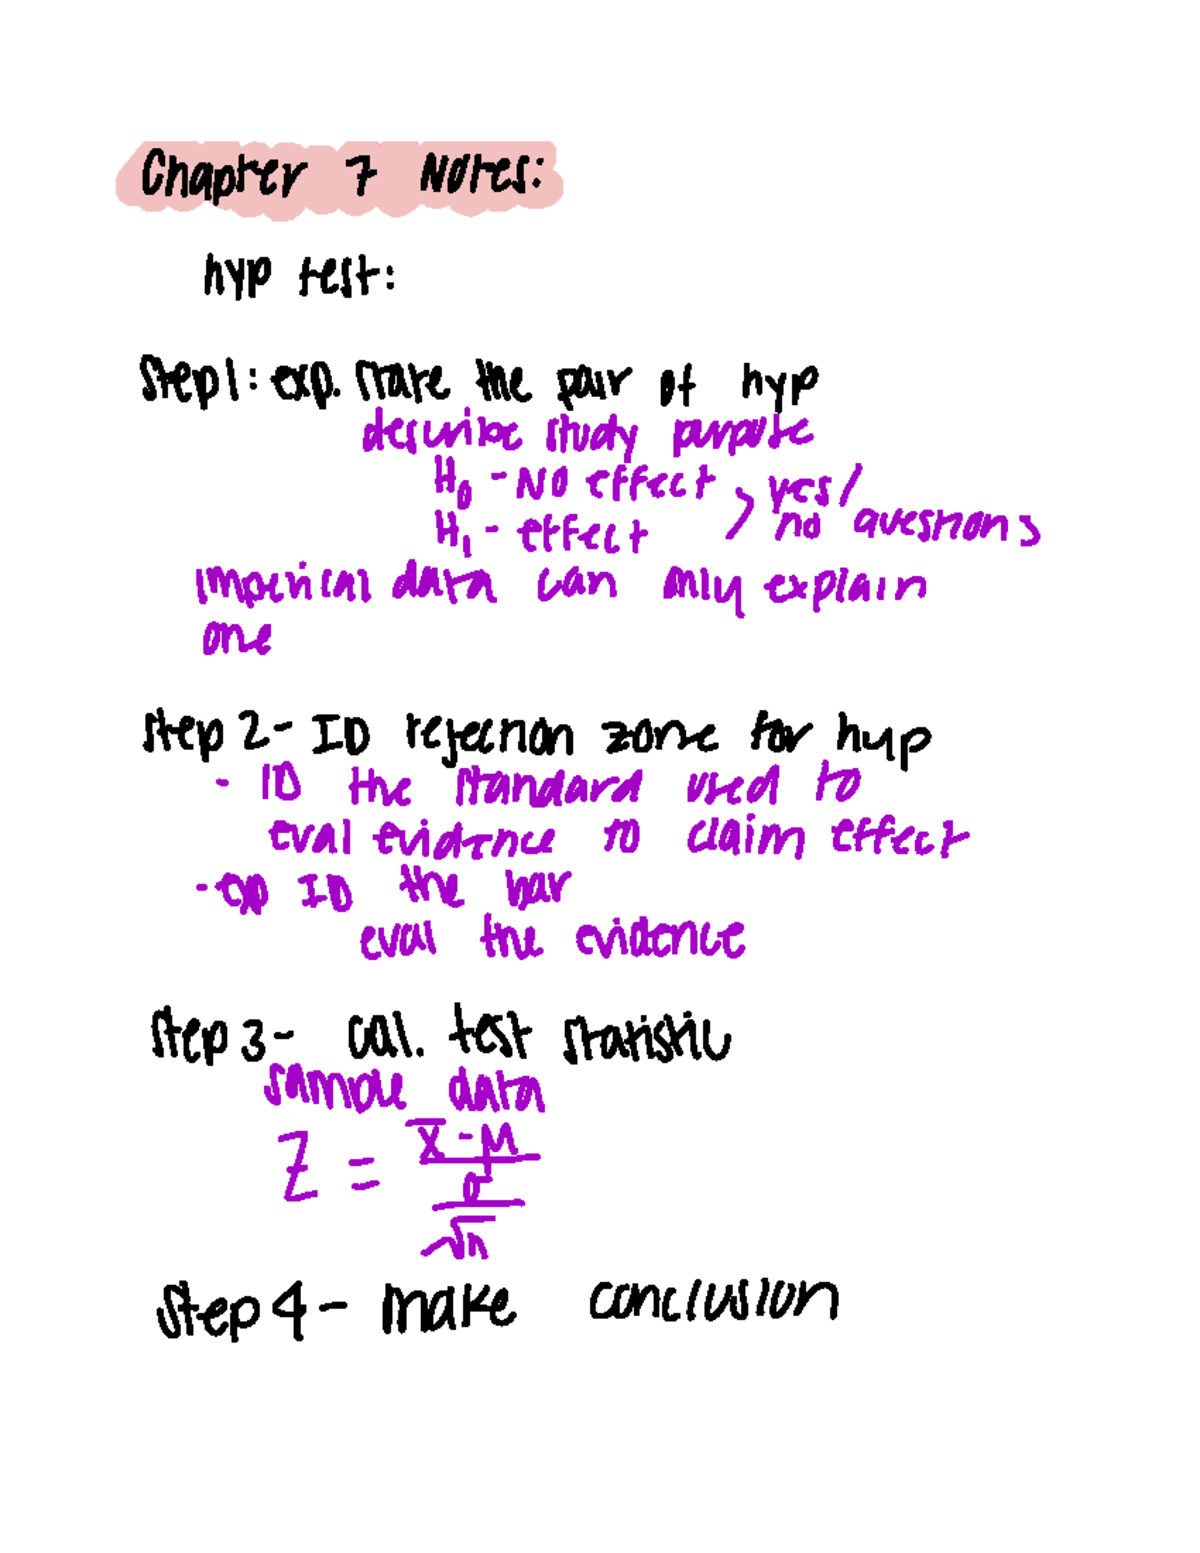 Chapter 7 Notes:
hyp test:
Step 1: exp. state the pair of hyp
describe study purpose
H₀ - NO effect > yes/
H₁ - effect no questions
Imperical data can only explain
one
Step 2 - ID rejection zone for hyp
- ID the standard used to
eval evidence to claim effect
- exp ID the bar
eval the evidence
Step 3 - cal. test statistic
sample data
Z = (x̄ - μ) / (σ / √n)
Step 4 - make conclusion